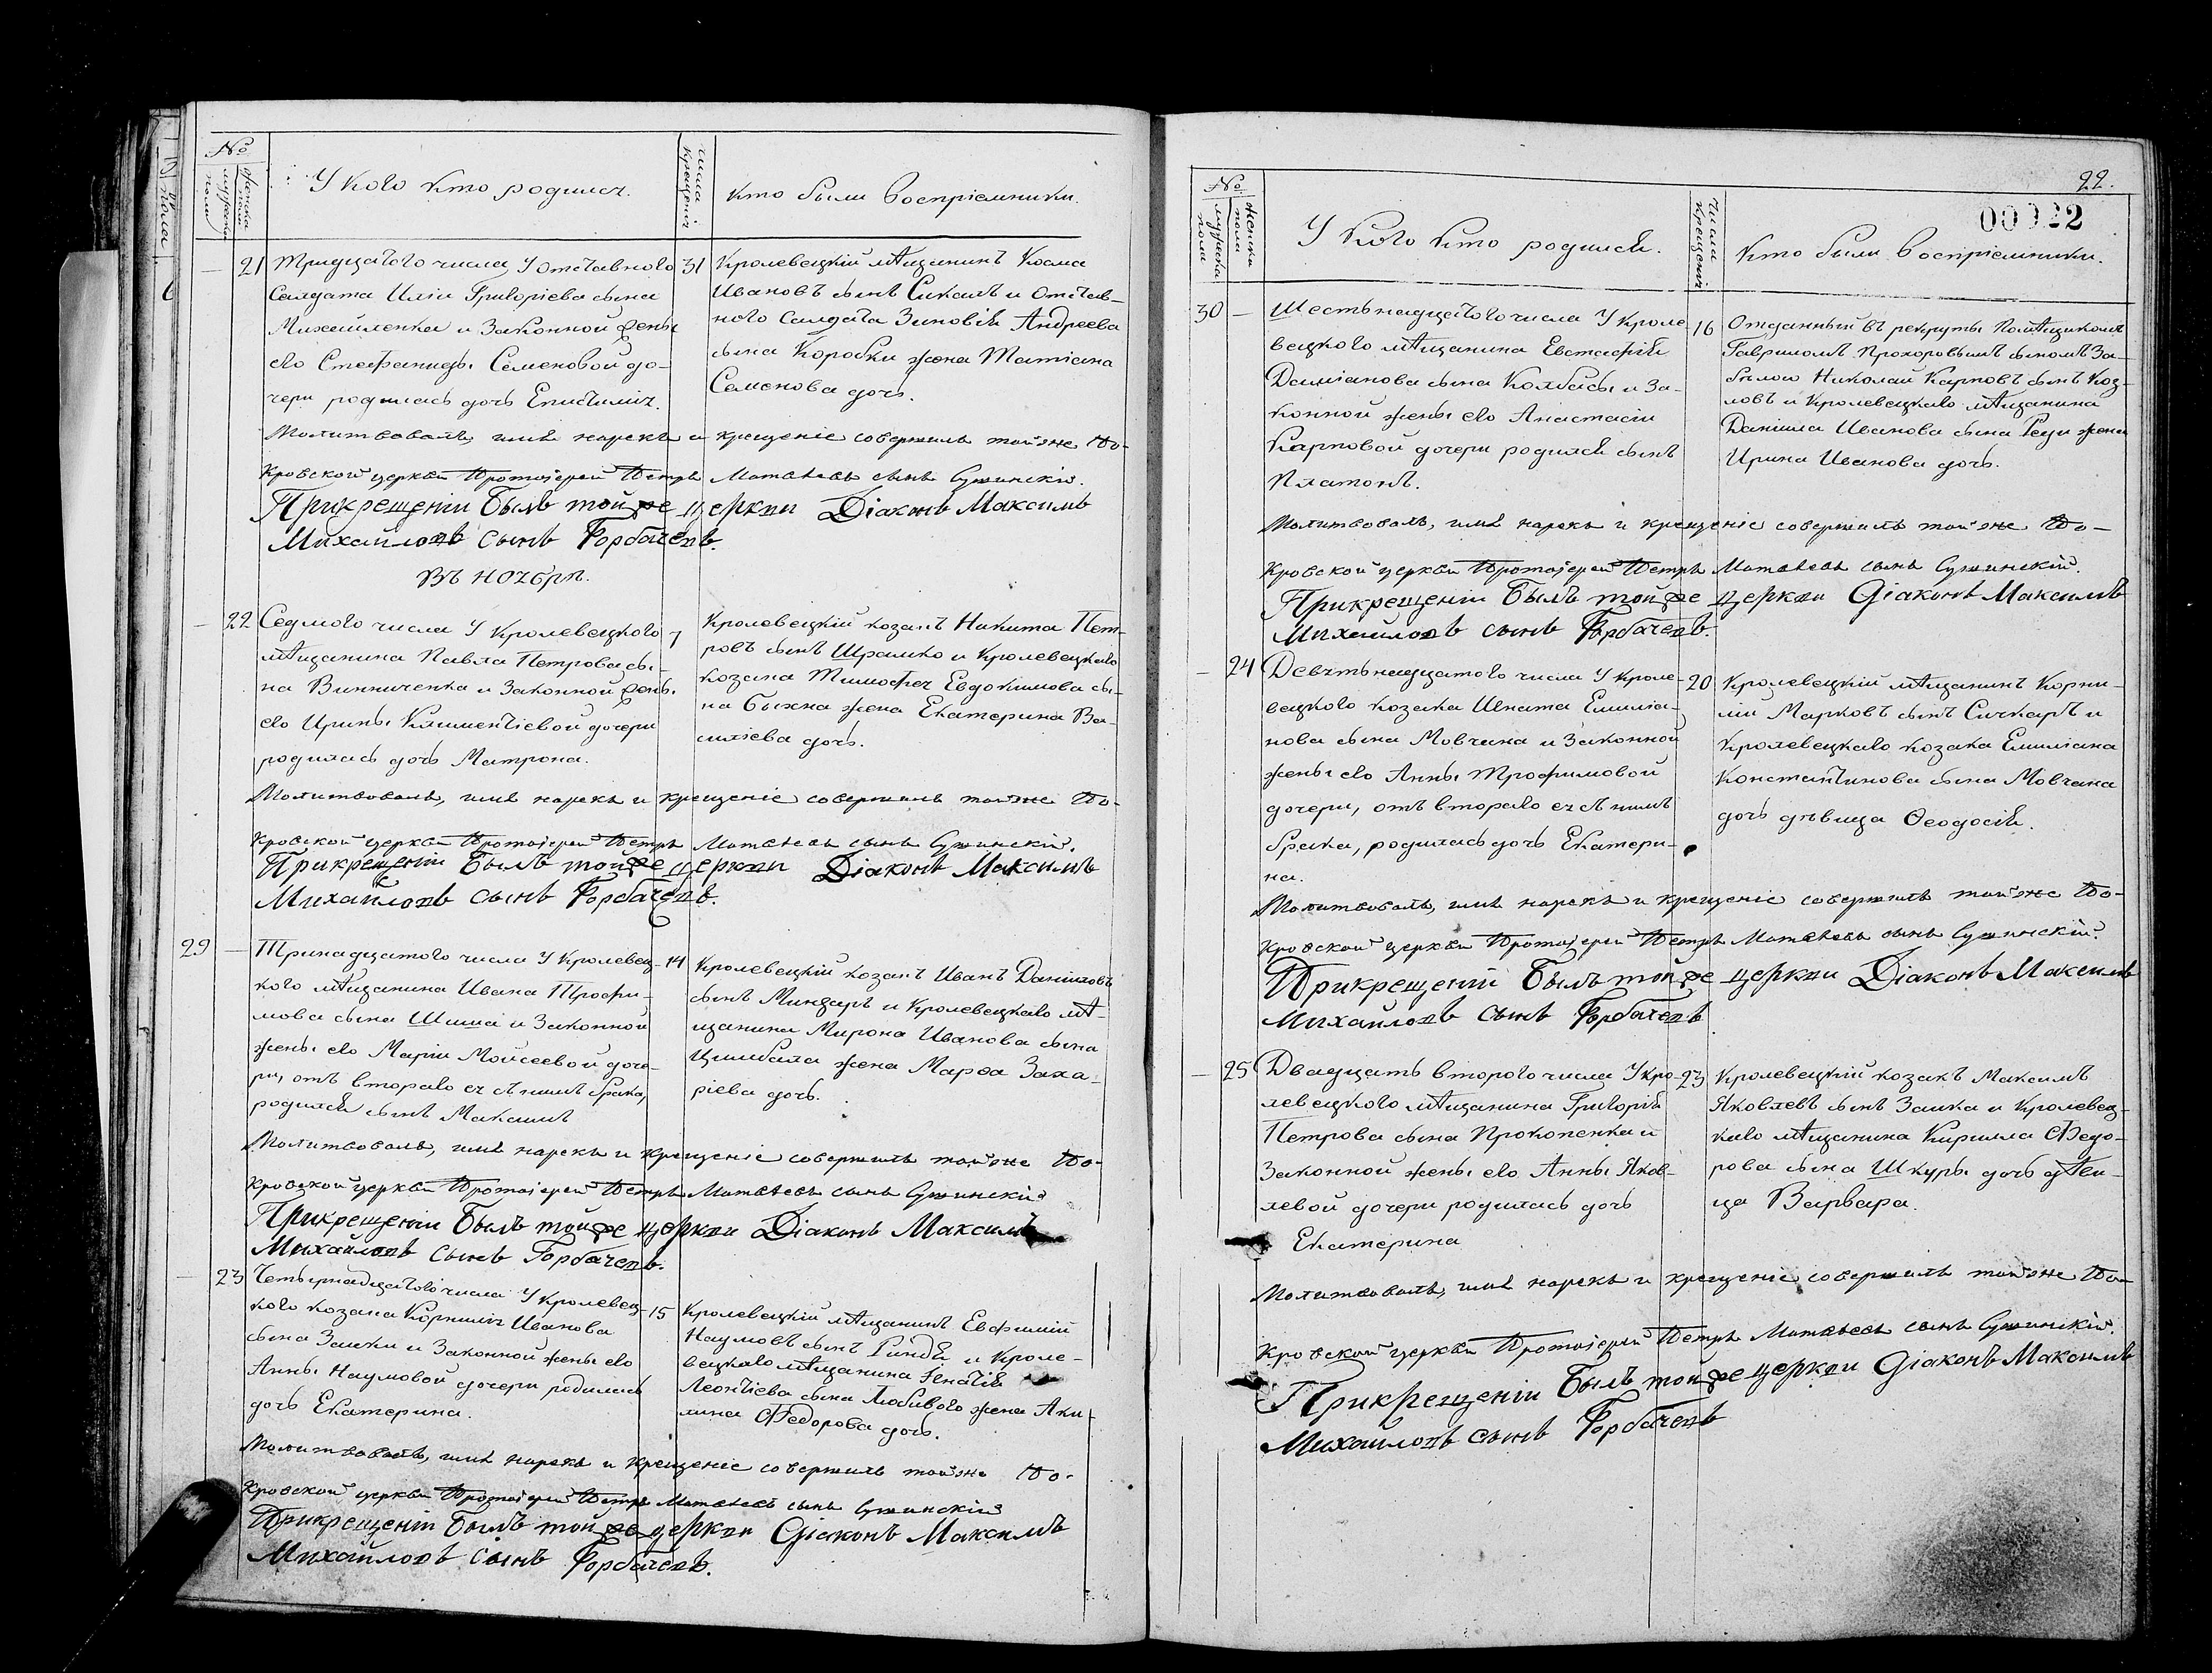 №
мужеска пола
женска пола
У кого кто родился.
числа крещенія
кто были воспріемники.
— 21 Тридцатого числа, У отставного
Солдата Иліи Григоріева сына
Михайленка и Законной жены
его Стефаниды Семеновой до-
чери родилась дочь Епистимія.
31 Кролевецкій мѣщанинъ Косма
Ивановъ сынъ Сикаль и Отстав-
ного Солдата Зиновія Андреева
сына Коробки жена Татіана
Семенова дочь.
Молитвовалъ, имя нарекъ и крещеніе совершилъ тойже По-
кровской церкви Протоіерей Петръ Матвѣевъ сынъ Сушинскій.
При крещеніи Былъ тойже церкви Діаконъ Максимъ
Михайловъ сынъ Горбачевъ.
Въ ноябрѣ.
— 22 Седмого числа У Кролевецкого
мѣщанина Павла Петрова сы-
на Винниченка и Законной жены
его Ирины Климентіевой дочери
родилась дочь Матрона.
7 Кролевецкій козакъ Никита Пет-
ровъ сынъ Шрамко и Кролевецкаго
козака Тимофея Евдокимова сы-
на Быхна жена Екатерина Ва-
силіева дочь.
Молитвовалъ, имя нарекъ и крещеніе совершилъ тойже По-
кровской церкви Протоіерей Петръ Матвѣевъ сынъ Сушинскій.
При крещеніи Былъ тойже церкви Діаконъ Максимъ
Михайловъ сынъ Горбачевъ.
29 — Тринадцатого числа У Кролевец-
кого мѣщанина Ивана Трофи-
мова сына Шиша и Законной
жены его Маріи Моисеевой доче-
ри, отъ втораго ея съ нимъ брака,
родился сынъ Максимъ
14 Кролевецкій козакъ Иванъ Даніиловъ
сынъ Миндаръ и Кролевецкаго мѣ-
щанина Мирона Иванова сына
Цимбала жена Марѳа Заха-
ріева дочь.
Молитвовалъ, имя нарекъ и крещеніе совершилъ тойже По-
кровской церкви Протоіерей Петръ Матвѣевъ сынъ Сушинскій
При крещеніи Былъ тойже церкви Діаконъ Максимъ
Михайловъ сынъ Горбачевъ.
— 23 Четырнадцатого числа У Кролевец-
кого козака Корнилія Иванова
сына Заики и Законной жены его
Анны Наумовой дочери родилась
дочь Екатерина.
15 Кролевецкій мѣщанинъ Евфимій
Наумовъ сынъ Риндя и Кроле-
вецкаго мѣщанина Игнатія
Леонтіева сына Любивого жена Аки-
лина Ѳедорова дочь.
Молитвовалъ, имя нарекъ и крещеніе совершилъ тойже По-
кровской церкви Протоіерей Петръ Матвѣевъ сынъ Сушинскій
При крещеніи Былъ тойже церкви Діаконъ Максимъ
Михайловъ сынъ Горбачевъ.
22.
00022
№
мужеска пола
женска пола
У кого кто родился.
Числа крещенія
Кто были воспріемники.
30 — Шестьнадцатого числа У Кроле-
вецкого мѣщанина Евстафія
Даміанова сына Колбасы и За-
конной жены его Анастасіи
Карповой дочери родился сынъ
Платонъ.
16 Отданный въ рекруты помѣщикомъ
Гавриломъ Прохоровымъ сыномъ За-
былою Николай Карповъ сынъ Коз-
ловъ и Кролевецкаго мѣщанина
Даніила Иванова сына Реди жена
Ирина Иванова дочь.
Молитвовалъ, имя нарекъ и крещеніе совершилъ тойже По-
кровской церкви Протоіерей Петръ Матвѣевъ сынъ Сушинскій.
При крещеніи Былъ тойже церкви Діаконъ Максимъ
Михайловъ сынъ Горбачевъ.
— 24 Девятьнадцатого числа У Кроле-
вецкого козака Игната Емиліа-
нова сына Мовчана и Законной
жены его Анны Трофимовой
дочери, отъ втораго ея съ нимъ
брака, родилась дочь Екатери-
на.
20 Кролевецкій мѣщанинъ Корни-
лій Марковъ сынъ Сичкаръ и
Кролевецкаго козака Емиліана
Константинова сына Мовчана
дочь дѣвица Ѳеодосія.
Молитвовалъ, имя нарекъ и крещеніе совершилъ тойже По-
кровской церкви Протоіерей Петръ Матвѣевъ сынъ Сушинскій.
При крещеніи Былъ тойже церкви Діаконъ Максимъ
Михайловъ сынъ Горбачевъ
— 25 Двадцать второго числа У Кро-
левецкого мѣщанина Григорія
Петрова сына Прокопенка и
Законной жены его Анны Яков-
левой дочери родилась дочь
Екатерина
23 Кролевецкій козакъ Максимъ
Яковлевъ сынъ Заика и Кролевец-
каго мѣщанина Кирилла Ѳедо-
рова сына Шкуры дочь дѣви-
ца Варвара.
Молитвовалъ, имя нарекъ и крещеніе совершилъ тойже По-
кровской церкви Протоіерей Петръ Матвѣевъ сынъ Сушинскій.
При крещеніи Былъ тойже церкви Діаконъ Максимъ
Михайловъ сынъ Горбачевъ